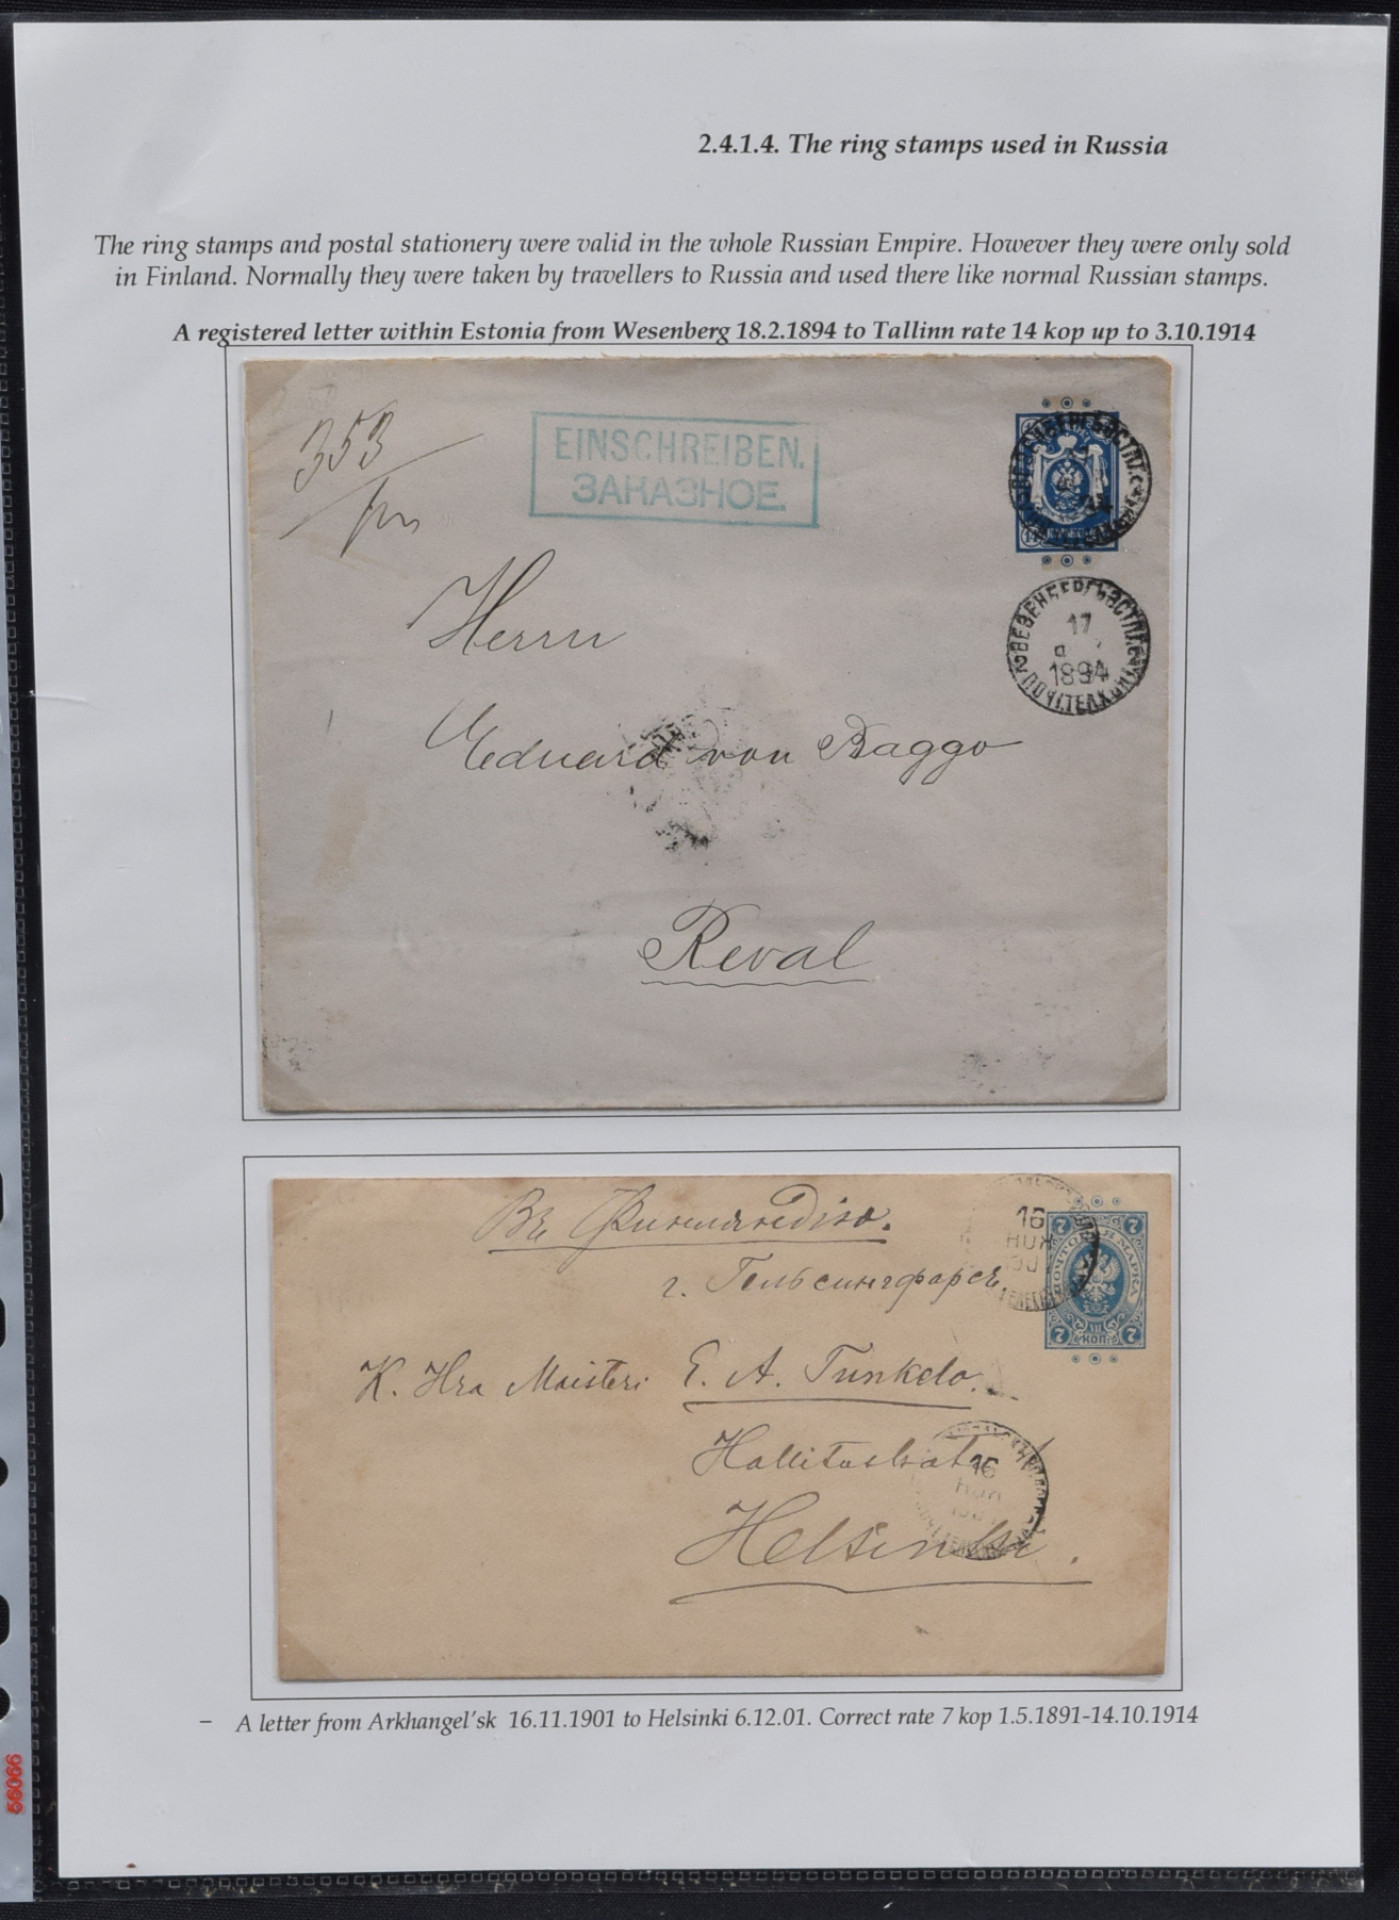 2.4.1.4. The ring stamps used in Russia
The ring stamps and postal stationery were valid in the whole Russian Empire. However they were only sold
in Finland. Normally they were taken by travellers to Russia and used there like normal Russian stamps.
A registered letter within Estonia from Wesenberg 18.2.1894 to Tallinn rate 14 kop up to 3.10.1914
353
EINSCHREIBEN.
ЗАКАЗНОЕ.
Herrn
17
1894
Eduard von Baggo
Reval
Въ Финляндiю.
г. Гельсингфорсъ
16
7 7
ПОЧТОВАЯ МАРКА
7 КОП. 7
K. Hra Maisteri E. A. Tunkelo.
16
Helsinki.
– A letter from Arkhangel'sk 16.11.1901 to Helsinki 6.12.01. Correct rate 7 kop 1.5.1891-14.10.1914
56066